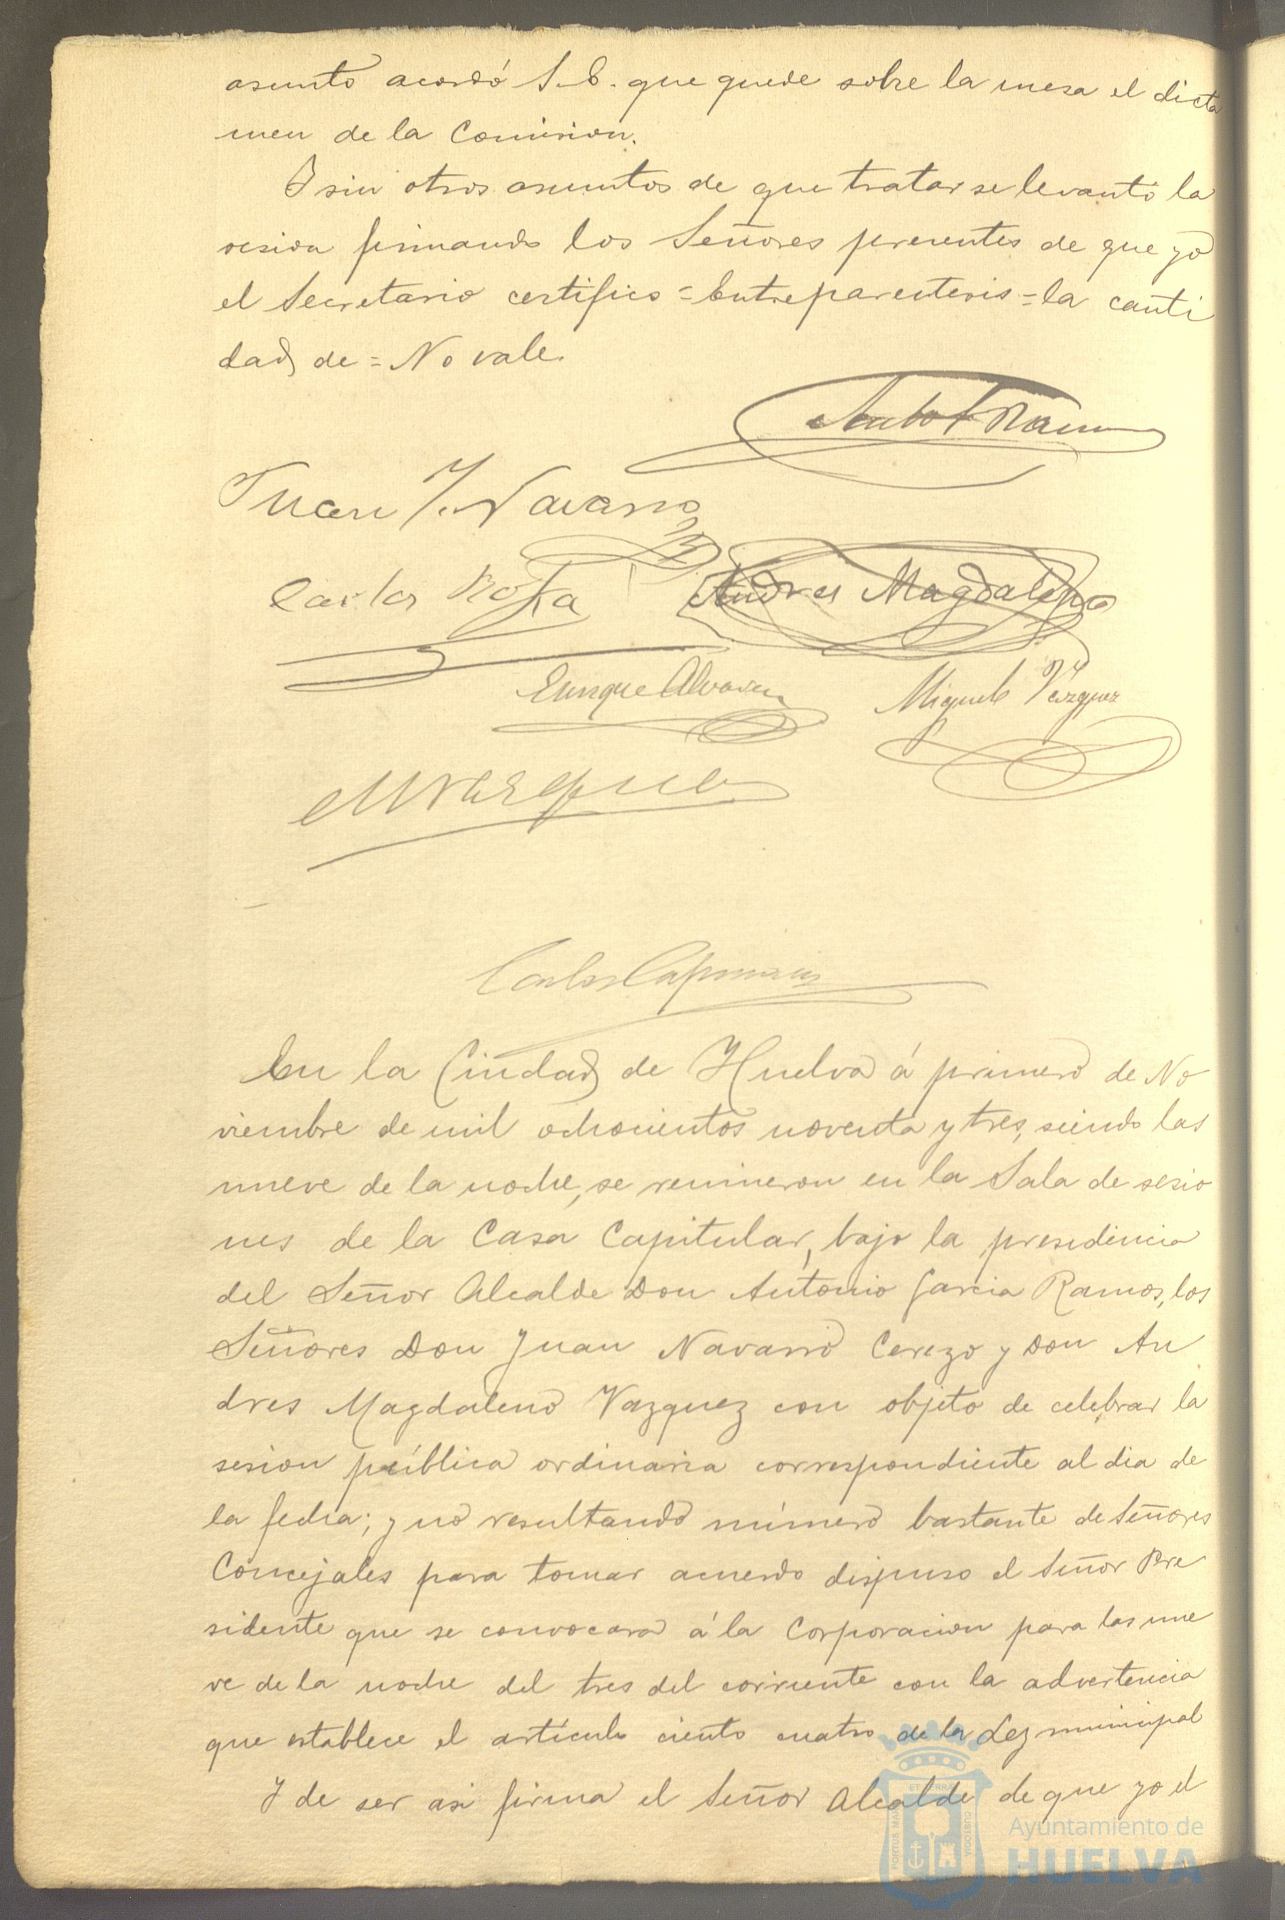 asunto acordó S.E. que quede sobre la mesa el dicta
men de la Comision.
Y sin otros asuntos de que tratar se levantó la
sesion firmando los Señores presentes de que yo
el Secretario certifico = Entreparentesis = la canti
dad de = No vale.
Juan J. Navarro
Carlos
Andres Magdaleno
Enrique
Miguel Vazquez
Carlos
En la Ciudad de Huelva á primero de No
viembre de mil ochocientos noventa y tres, siendo las
nueve de la noche, se reunieron en la Sala de sesio
nes de la Casa Capitular, bajo la presidencia
del Señor Alcalde Don Antonio Garcia Ramos, los
Señores Don Juan Navarro Cerezo y Don An
dres Magdaleno Vazquez con objeto de celebrar la
sesion pública ordinaria correspondiente al dia de
la fecha; y no resultando número bastante de Señores
Concejales para tomar acuerdo dispuso el Señor Pre
sidente que se convocara á la Corporacion para las nue
ve de la noche del tres del corriente con la advertencia
que establece el artículo ciento cuatro de la Ley municipal
Y de ser asi firma el Señor Alcalde de que yo el
Ayuntamiento de
HUELVA